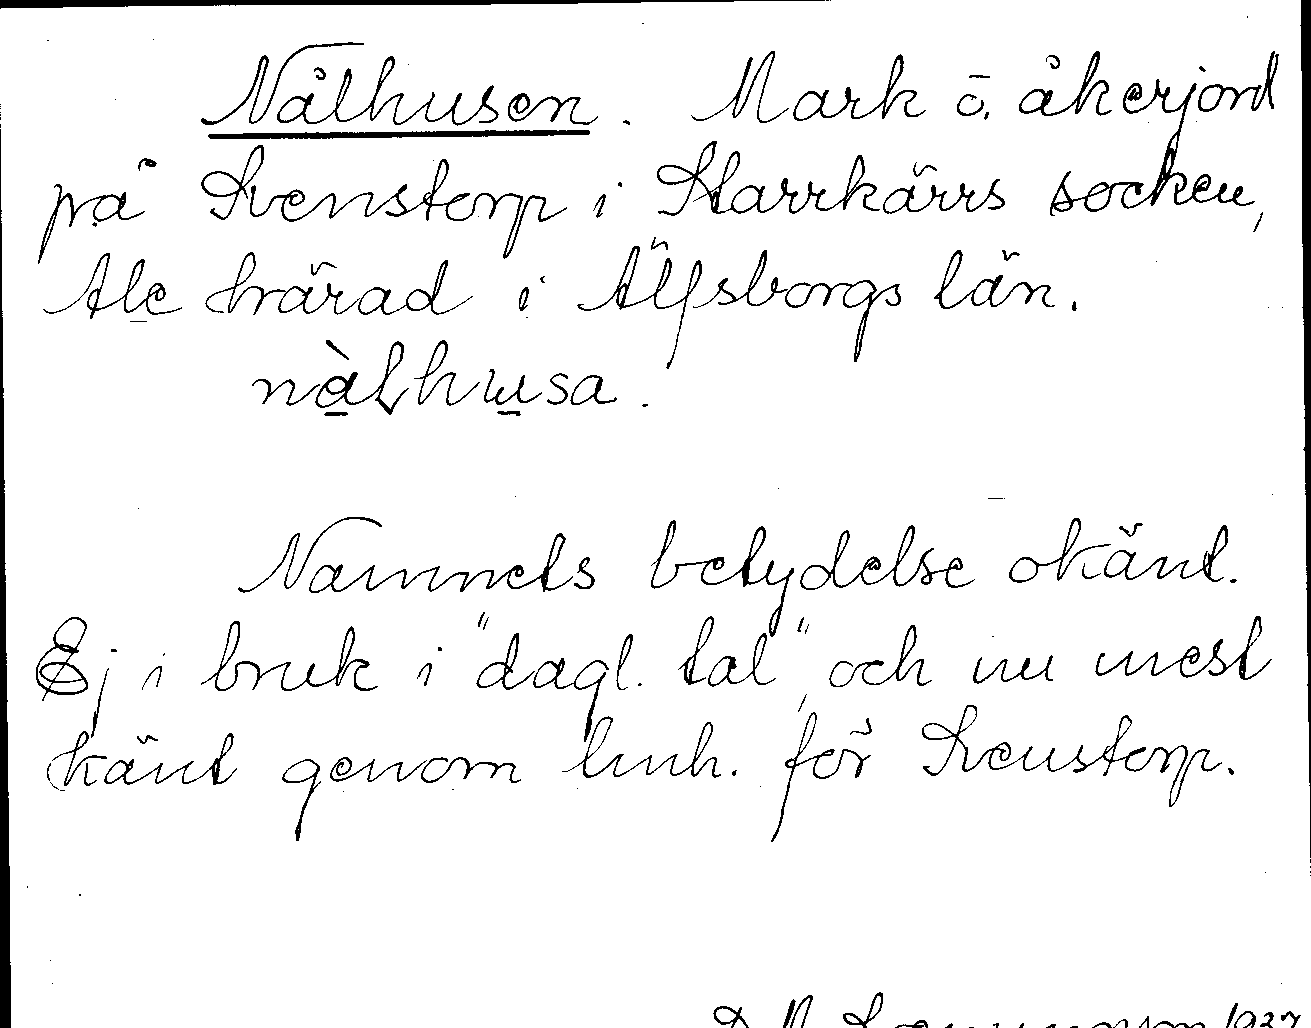 Nålhusen. Mark o. åkerjord
på Svenstorp i Starrkärrs socken,
Ale härad i Älfsborgs län.
nàlhusa.
Namnets betydelse okänt.
Ej i bruk i "dagl. tal", och nu mest
känt genom lmh. för Svenstorp.
1937